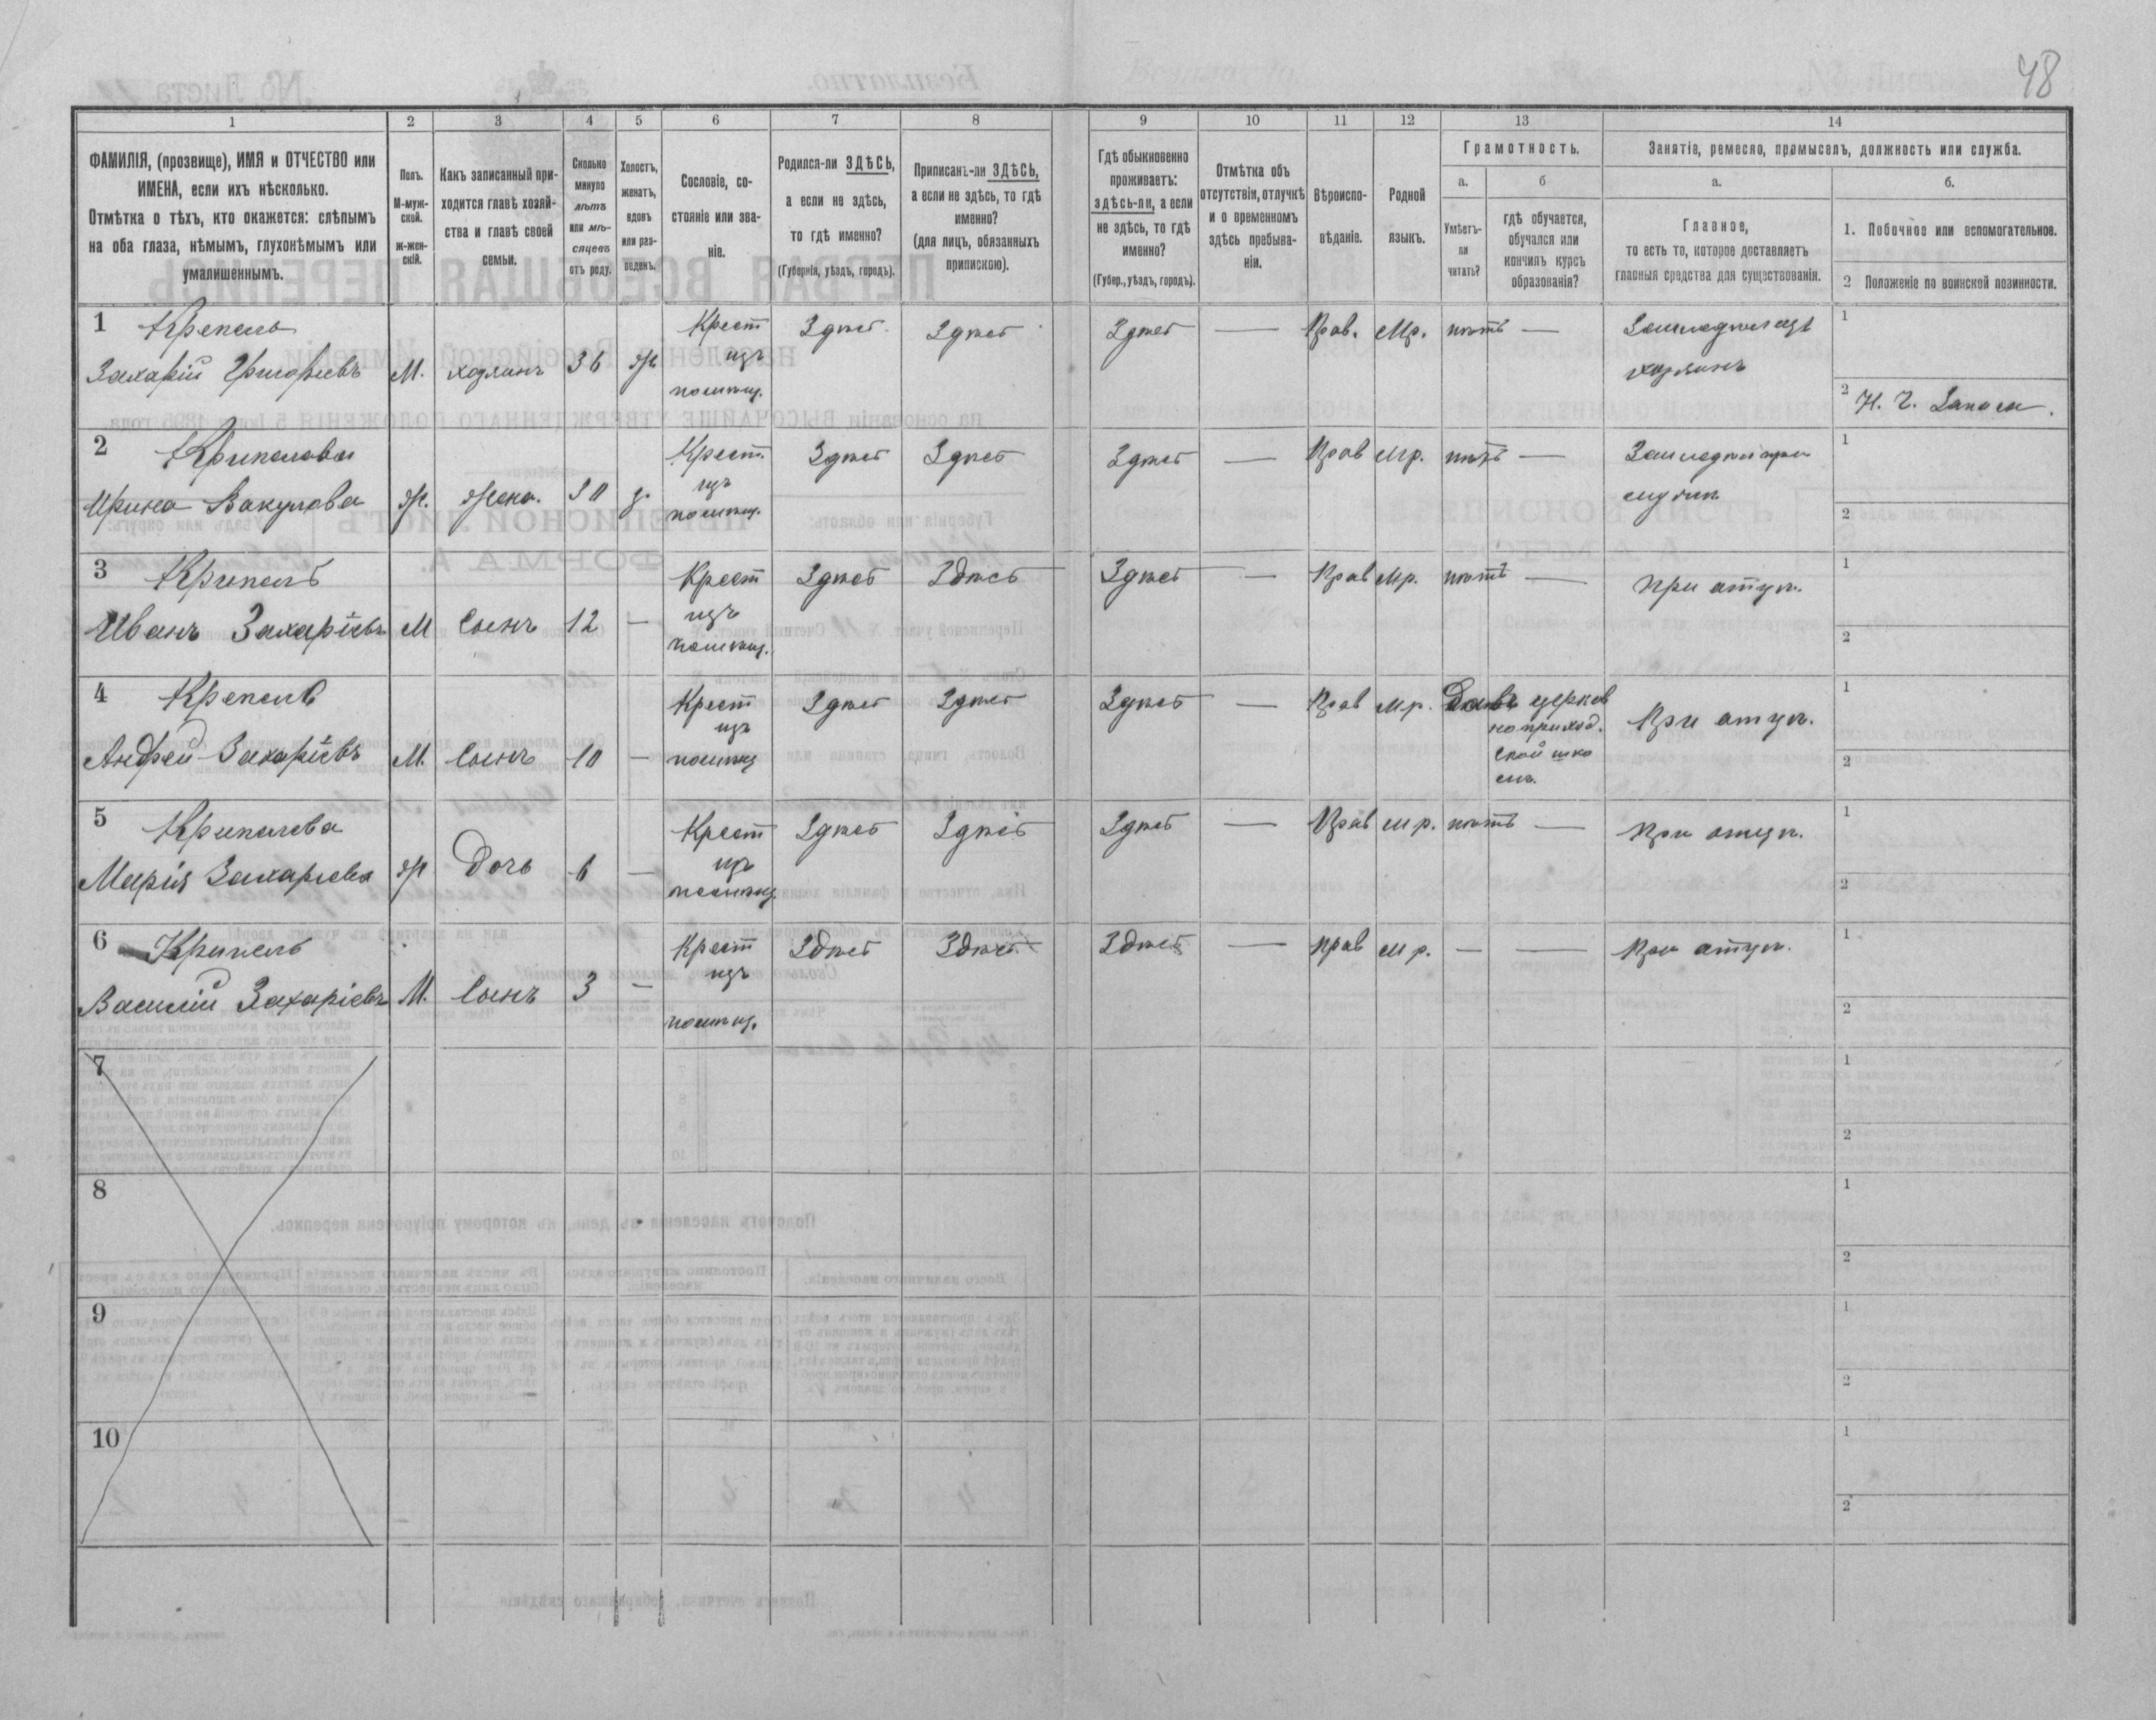 48
1 2 3 4 5 6 7 8 9 10 11 12 13 14
ФАМИЛІЯ, (прозвище), ИМЯ и ОТЧЕСТВО или
ИМЕНА, если ихъ нѣсколько.
Отмѣтка о тѣхъ, кто окажется: слѣпымъ
на оба глаза, нѣмымъ, глухонѣмымъ или
умалишеннымъ.
Полъ.
М-муж-
ской.
Ж-жен-
скій.
Какъ записанный при-
ходится главѣ хозяй-
ства и главѣ своей
семьи.
Сколько
минуло
лѣтъ
или мѣ-
сяцевъ
отъ роду.
Холостъ,
женатъ,
вдовъ
или раз-
веденъ.
Сословіе, со-
стояніе или зва-
ніе.
Родился-ли ЗДѢСЬ,
а если не здѣсь,
то гдѣ именно?
(Губернія, уѣздъ, городъ).
Приписанъ-ли ЗДѢСЬ,
а если не здѣсь, то гдѣ
именно?
(для лицъ, обязанныхъ
припискою).
Гдѣ обыкновенно
проживаетъ:
здѣсь-ли, а если
не здѣсь, то гдѣ
именно?
(Губер., уѣздъ, городъ).
Отмѣтка объ
отсутствіи, отлучкѣ
и о временномъ
здѣсь пребыва-
ніи.
Вѣроиспо-
вѣданіе.
Родной
языкъ.
Грамотность.
а.
Умѣетъ-
ли
читать?
б
гдѣ обучается,
обучался или
кончилъ курсъ
образованія?
Занятіе, ремесло, промыселъ, должность или служба.
а.
Главное,
то есть то, которое доставляетъ
главныя средства для существованія.
б.
1. Побочное или вспомогательное.
2 Положеніе по воинской повинности.
1 Крепель Крест Здѣсь Здѣсь Здѣсь — Прав. Мр. нѣтъ — 1
Захарій Григорієвъ М. хозяинъ 36 ж изъ хозяинъ
помѣщ. 2 Н. Ч. Запаса.
2 Крипелова Крест. Здѣсь Здѣсь Здѣсь — Прав Мр. нѣтъ — 1
Ирина Вакулова Ж. Жена. 30 з. изъ
помѣщ. 2
3 Крипель Крест Здѣсь Здѣсь Здѣсь — Прав Мр. нѣтъ — При отцѣ. 1
Иванъ Захарієвъ М Сынъ 12 — изъ
помѣщ. 2
4 Крепель Крест Здѣсь Здѣсь Здѣсь — Прав Мр. церков При отцѣ. 1
изъ но приход.
Андрей Захарієвъ М. Сынъ 10 — помѣщ ской шко 2
лѣ.
5 Крипелова Крест Здѣсь Здѣсь Здѣсь — Прав мр. нѣтъ — При отцѣ. 1
Марія Захарієва Ж Дочь 6 — изъ
помѣщ. 2
6 Крипель Крест Здѣсь Здѣсь Здѣсь — прав мр. — — При отцѣ. 1
Василій Захарієвъ М. Сынъ 3 — изъ
помѣщ. 2
7 1
2
8 1
2
9 1
2
10 1
2